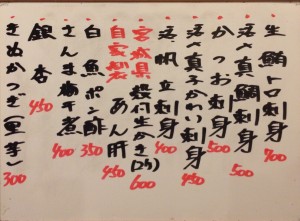 生鮪トロ刺身 700
活〆真鯛刺身 500
かつお刺身 500
活〆真子かわい刺身 450
活帆立刺身 400
宮城県殻付生かき(2ケ) 600
自家製あん肝 450
白魚ポン酢 350
さんま梅干煮 400
銀杏 450
きぬかつぎ(里芋) 300